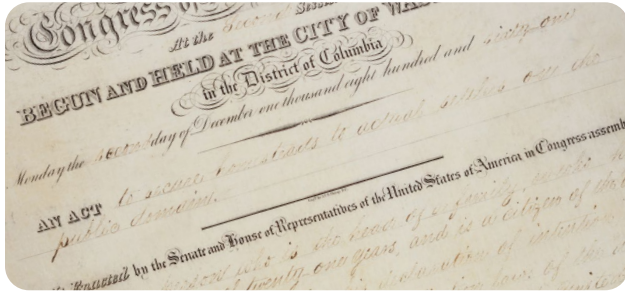 Congress of
At the second Session
BEGUN AND HELD AT THE CITY OF WAS
in the District of Columbia
Monday the second day of December one thousand eight hundred and sixty-one
AN ACT to secure homesteads to actual settlers on the
public domain.
Enacted by the Senate and House of Representatives of the United States of America in Congress assemb
person who is the head of a family, or who
of twenty one years, and is a citizen of the
declaration of intention
laws of the